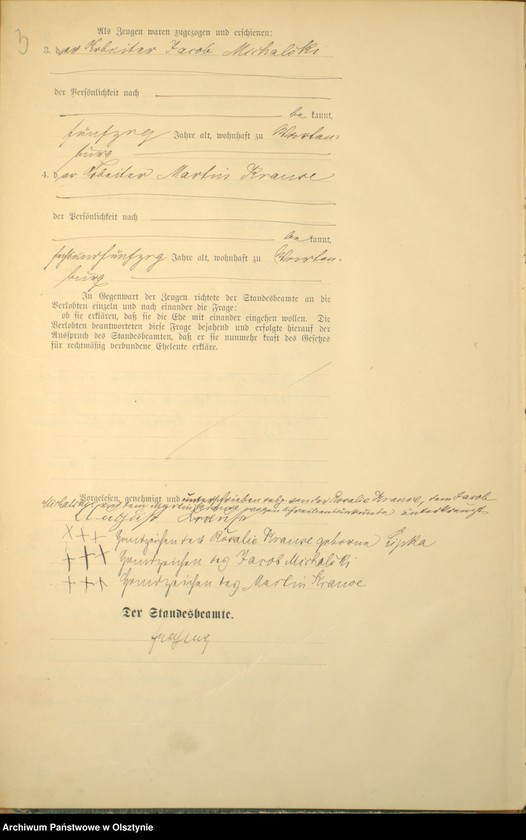 3
Als Zeugen waren zugezogen und erschienen:
3. der Arbeiter Jacob Michalski
der Persönlichkeit nach
be kannt,
fünfzig Jahre alt, wohnhaft zu Warten-
burg
4. der Arbeiter Martin Krause
der Persönlichkeit nach
be kannt,
sechsundfünfzig Jahre alt, wohnhaft zu Warten-
burg
In Gegenwart der Zeugen richtete der Standesbeamte an die
Verlobten einzeln und nach einander die Frage:
ob sie erklären, daß sie die Ehe mit einander eingehen wollen. Die
Verlobten beantworteten diese Frage bejahend und erfolgte hierauf der
Ausspruch des Standesbeamten, daß er sie nunmehr kraft des Gesetzes
für rechtmäßig verbundene Eheleute erkläre.
Vorgelesen, genehmigt und unterschrieben resp. von der Rosalie Krause, dem Jacob
Michalski und dem Martin Krause wegen Schreibensunkunde unterkreuzt
August
XXX Handzeichen der Rosalie Krause geborene Lipka
+++ Handzeichen des Jacob Michalski
+++ Handzeichen des Martin Krause
Der Standesbeamte.
Archiwum Państwowe w Olsztynie